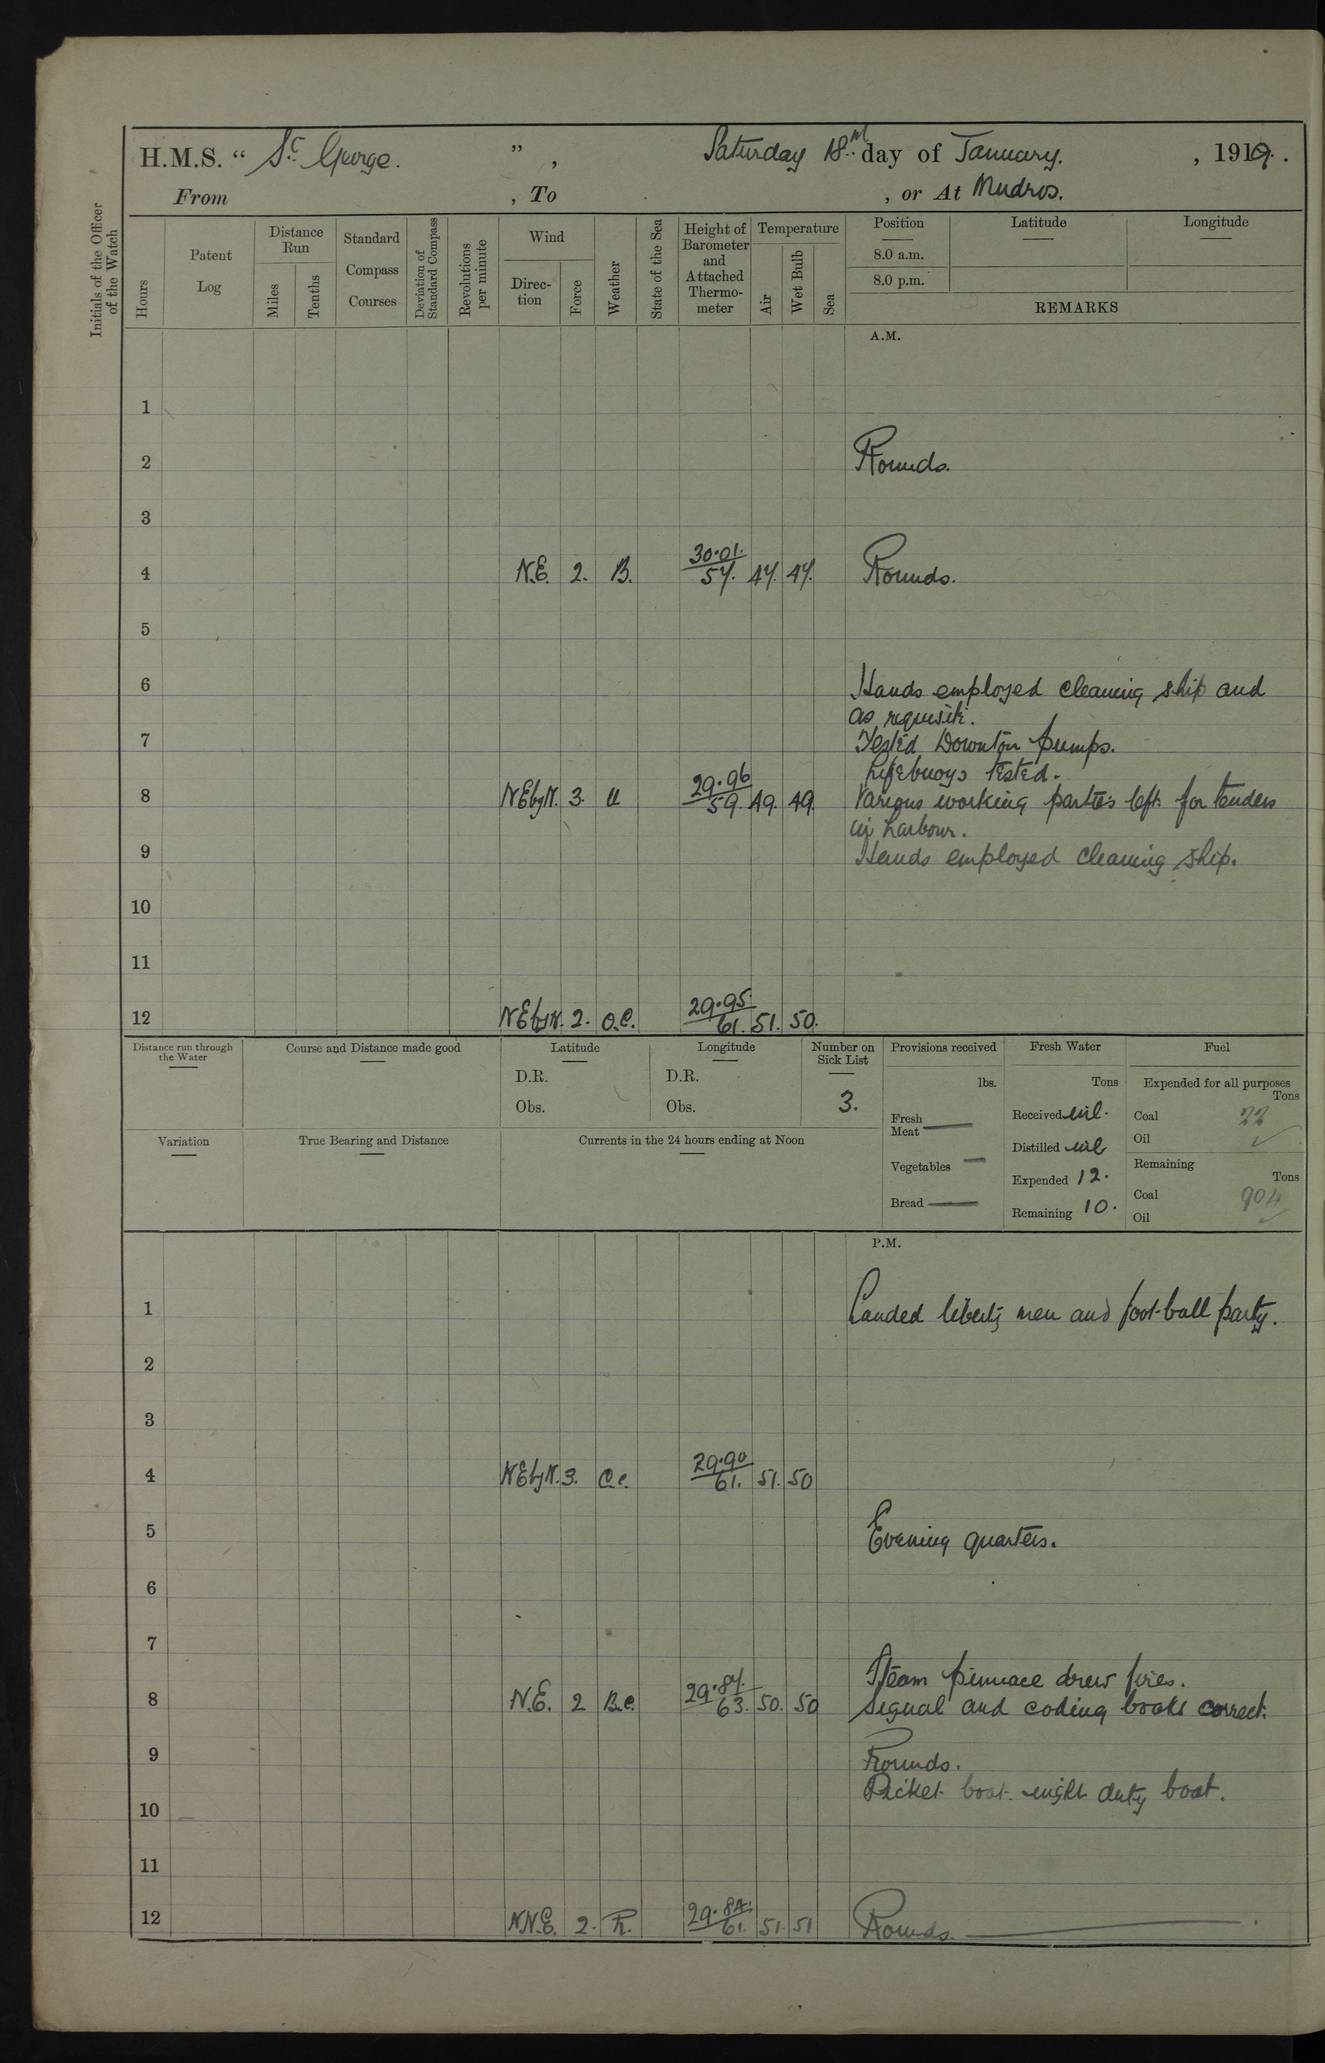 H.M.S. “ St George. ” , Saturday 18th day of January. , 1919.
From , To , or At Mudros.
Initials of the Officer of the Watch
Hours
Patent Log
Distance Run
Miles
Tenths
Standard Compass Courses
Deviation of Standard Compass
Revolutions per minute
Wind
Direction
Force
Weather
State of the Sea
Height of Barometer and Attached Thermometer
Temperature
Air
Wet Bulb
Sea
Position
8.0 a.m.
8.0 p.m.
Latitude
Longitude
REMARKS
A.M.
1
2 Rounds.
3
4 N.E. 2. B. 30.01. 57. 47. 47. Rounds.
5
6 Hands employed cleaning ship and
as requisite.
7 Tested Downton pumps.
Lifebuoys tested.
8 NEbyN. 3. U 29.96 59. 49. 49. Various working parties left for tenders
in harbour.
9 Hands employed cleaning ship.
10
11
12 NEbyN. 2. O.C. 29.95. 61. 51. 50.
Distance run through the Water
Course and Distance made good
Latitude
D.R.
Obs.
Longitude
D.R.
Obs.
Number on Sick List
3.
Provisions received
lbs.
Fresh Meat
Vegetables
Bread
Fresh Water
Tons
Received nil.
Distilled nil
Expended 12.
Remaining 10.
Fuel
Expended for all purposes
Tons
Coal 22
Oil
Remaining
Tons
Coal 904
Oil
Variation
True Bearing and Distance
Currents in the 24 hours ending at Noon
P.M.
1 Landed liberty men and foot-ball party.
2
3
4 NEbyN. 3. O.c. 29.90 61. 51. 50
5 Evening quarters.
6
7
Steam pinnace drew fires.
8 N.E. 2 B.c. 29.87. 63. 50. 50 Signal and coding books correct.
9 Rounds.
Picket boat night duty boat.
10
11
12 N.N.E. 2. R. 29.84. 61. 51. 51 Rounds.